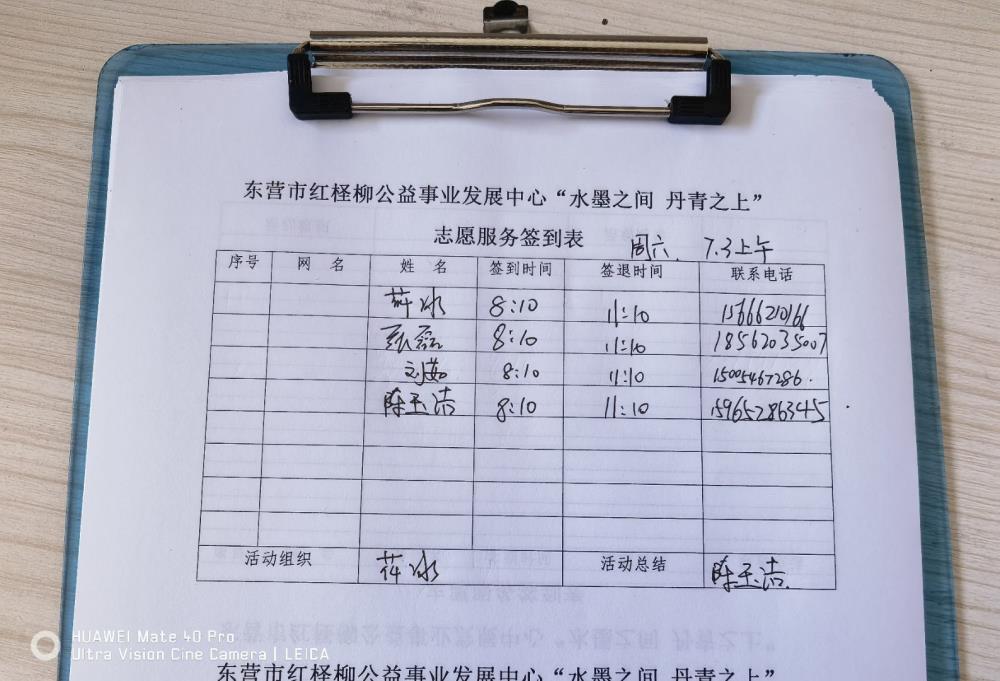 东营市红柽柳公益事业发展中心“水墨之间 丹青之上”
志愿服务签到表 周六. 7.3上午
序号 网 名 姓 名 签到时间 签退时间 联系电话
8:10 11:10 15666210166
张磊 8:10 11:10 18562035007
刘茹 8:10 11:10 15005467286.
陈玉洁 8:10 11:10 15965286345
活动组织 活动总结 陈玉洁.
HUAWEI Mate 40 Pro
Ultra Vision Cine Camera | LEICA
东营市红柽柳公益事业发展中心“水墨之间 丹青之上”